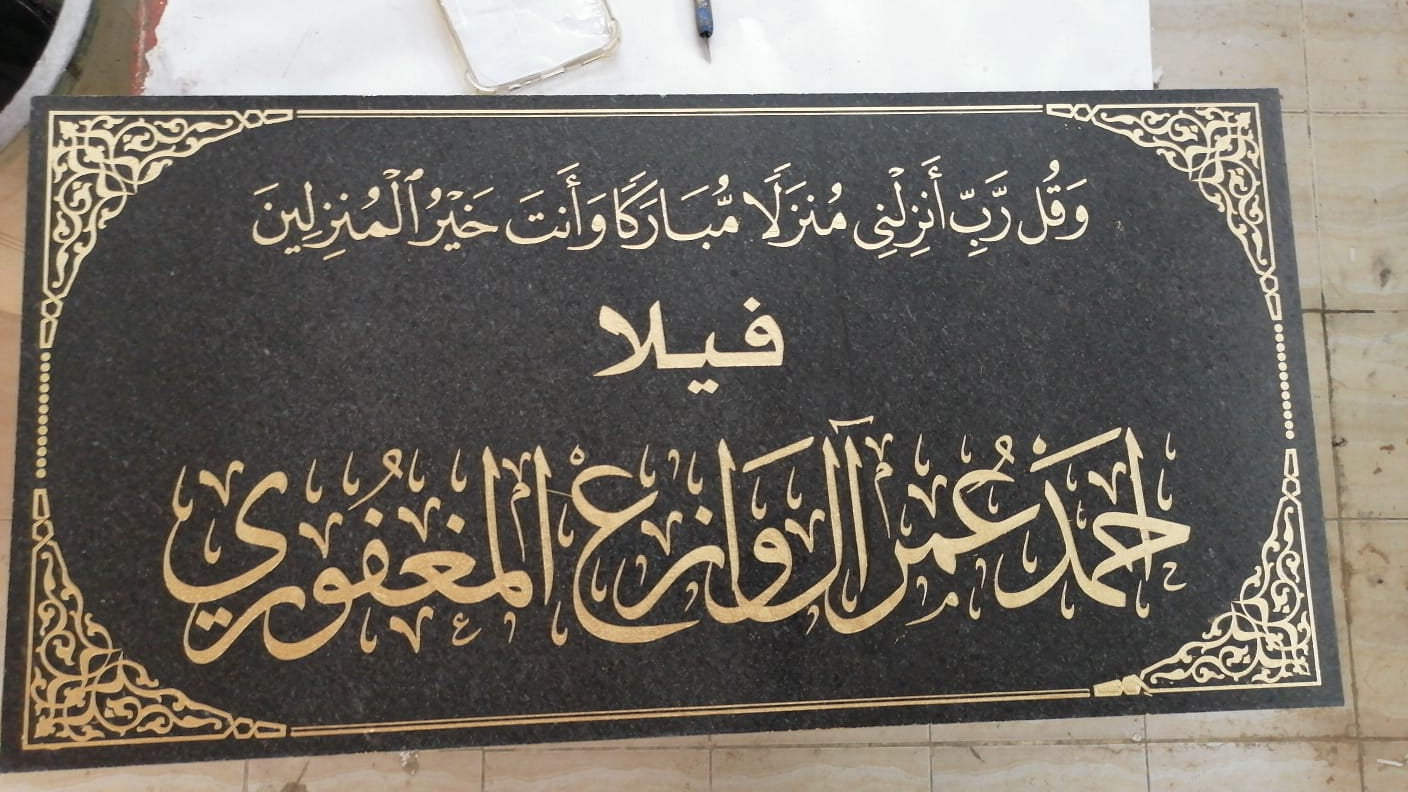 وَقُل رَّبِّ أَنزِلْنِى مُنزَلًا مُّبَارَكًا وَأَنتَ خَيْرُ ٱلْمُنزِلِينَ
فيلا
احمد عُمر آل وازع المغفوري